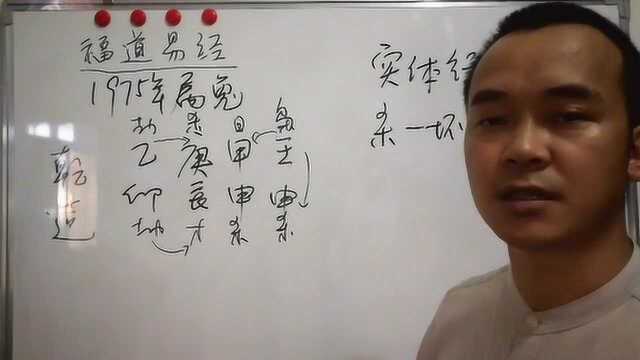 福道易经
1975年属兔
劫 杀 日 枭
乙 庚 甲 壬
卯 辰 申 申
劫 才 杀 杀
乾造
实体经
杀一坏